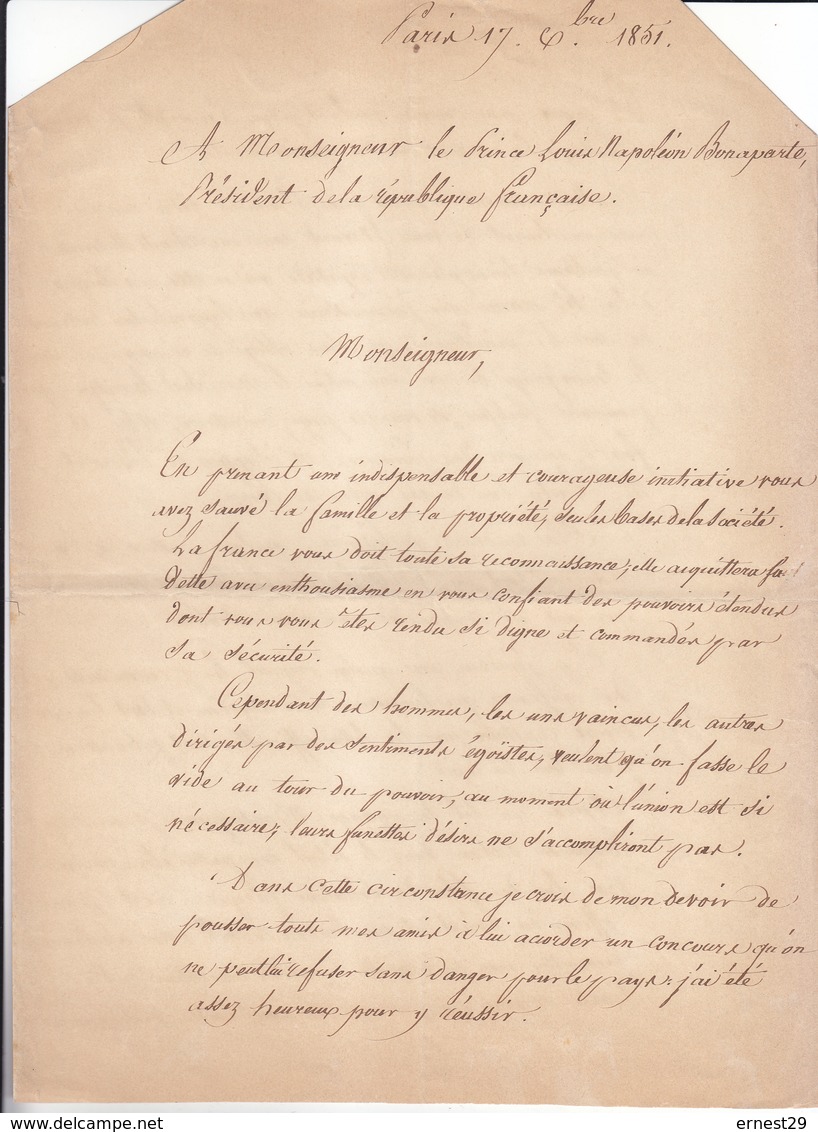 Paris 17. Xbre 1851.
A Monseigneur le Prince Louis Napoléon Bonaparte,
Président de la république française.
Monseigneur,
En prenant une indispensable et courageuse initiative vous
avez sauvé la famille et la propriété, seules bases de la société.
La france vous doit toute sa reconnaissance, elle acquittera sa
dette avec enthousiasme en vous confiant des pouvoirs étendus
dont vous vous êtes rendu si digne et commandés par
sa sécurité.
Cependant des hommes, les uns vaincus, les autres
dirigés par des sentiments égoïstes, veulent qu'on fasse le
vide au tour du pouvoir, au moment où l'union est si
nécessaire; leurs funestes désirs ne s'accompliront pas.
Dans cette circonstance je crois de mon devoir de
pousser touts mes amis à lui accorder un concours qu'on
ne peut lui refuser sans danger pour le pays: j'ai été
assez heureux pour y réussir.
delcampe.net
ernest29